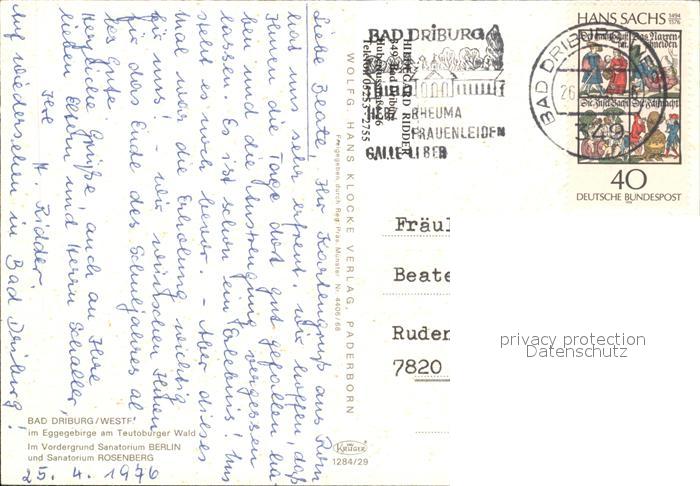 Liebe Beate! Ihr Kartengruß aus Rom
hat uns sehr erfreut. Wir hoffen, daß
Ihnen die Tage dort gut gefallen ha-
ben und die Anstrengung vergessen
lassen. Es ist schon ein Erlebnis! Uns
steht es noch bevor. - Aber dieses
Mal war die Erholung wichtig
für uns! - Wir wünschen Ihnen
für das Ende des Schuljahres al-
les Gute.
Herzliche Grüße, auch an Ihre
lieben Eltern und Herrn Schaller,
Ihre H. Ridder
Auf wiedersehen in Bad Driburg!
25. 4. 1976
BAD DRIBURG/WESTF.
im Eggegebirge am Teutoburger Wald
Im Vordergrund Sanatorium BERLIN
und Sanatorium ROSENBERG
WOLFG. HANS KLOCKE VERLAG, PADERBORN
Freigegeben durch Reg. Präs. Münster Nr. 4406/68
KRÜGER
1284/29
RIDDER
3490 Bad Driburg
BAD DRIBURG
HERZ RHEUMA
FRAUENLEIDEN
GALLE-LEBER
BAD DRIBURG
349
HANS SACHS 1494
1576
40
DEUTSCHE BUNDESPOST
Fräul
Beate
Ruden
7820
privacy protection
Datenschutz